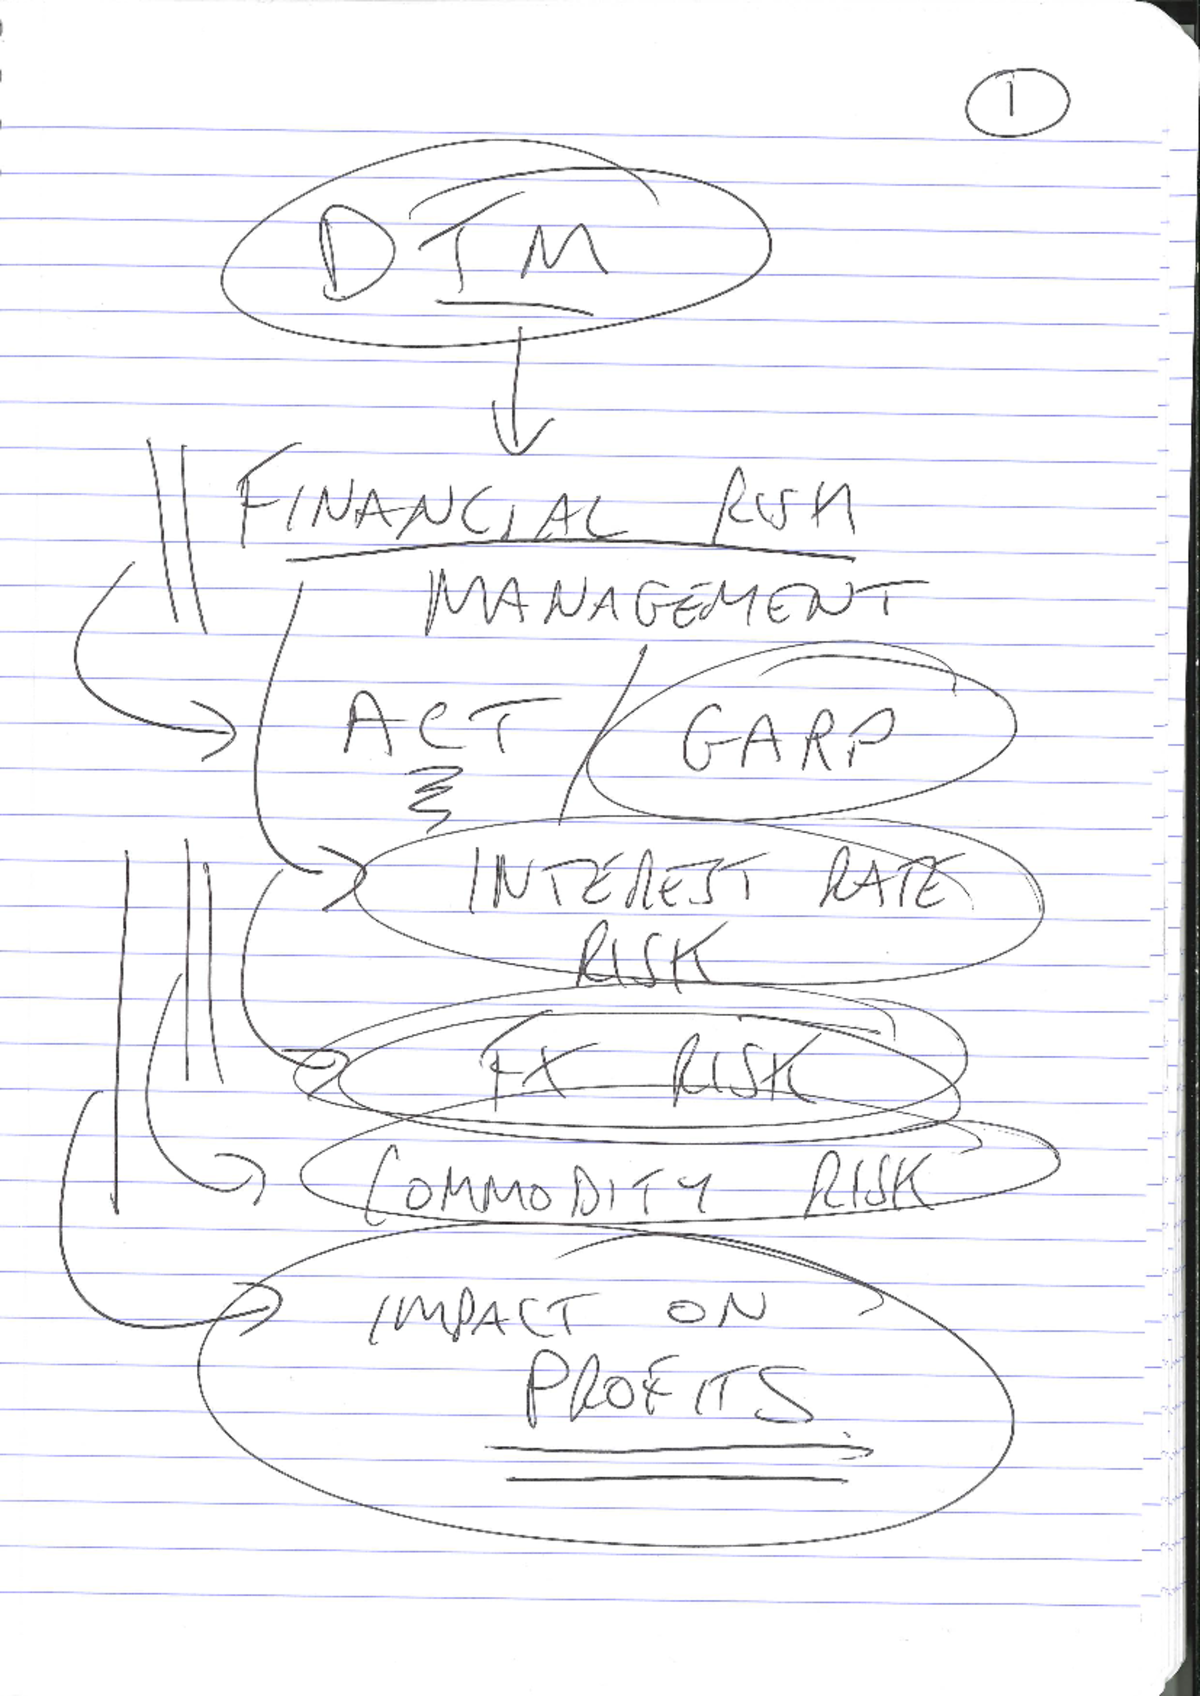 1
DTM
FINANCIAL RISK
MANAGEMENT
ACT / GARP
INTEREST RATE
RISK
FX RISK
COMMODITY RISK
IMPACT ON
PROFITS